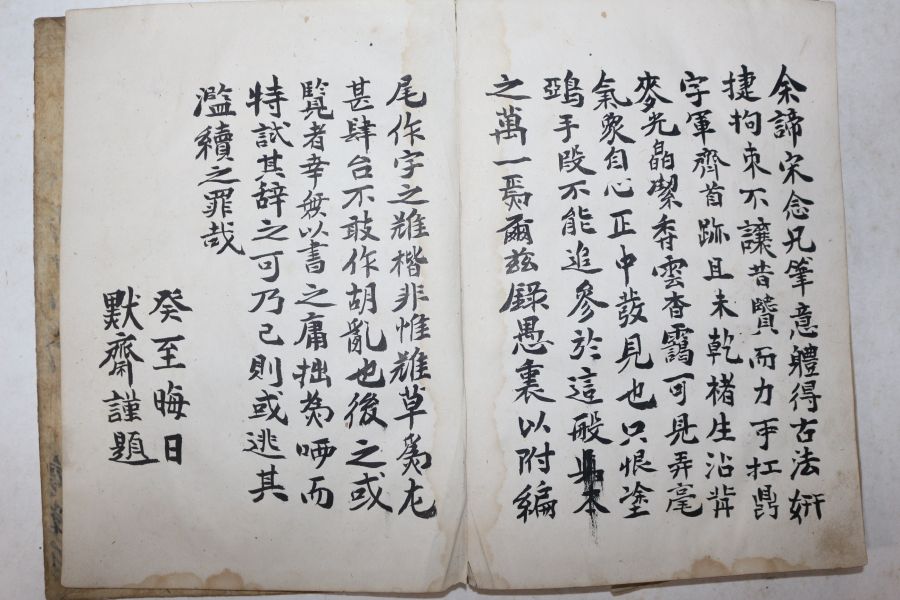 余諦宋念兄筆意體得古法妍
捷拘束不讓昔贒而力乎扛鼎
字軍齊首跡且未乾楮生沾背
麥光晶潔香雲杳靄可見弄毫
氣象自心正中發見也只恨塗
鴉手段不能追參於這般
之萬一焉爾玆錄愚裏以附編
尾作字之難楷非惟難草爲尤
甚肆台不敢作胡亂也後之或
覽者幸無以書之庸拙爲哂而
特試其辞之可乃已則或逃其
濫續之罪哉
癸至晦日
默齋謹題